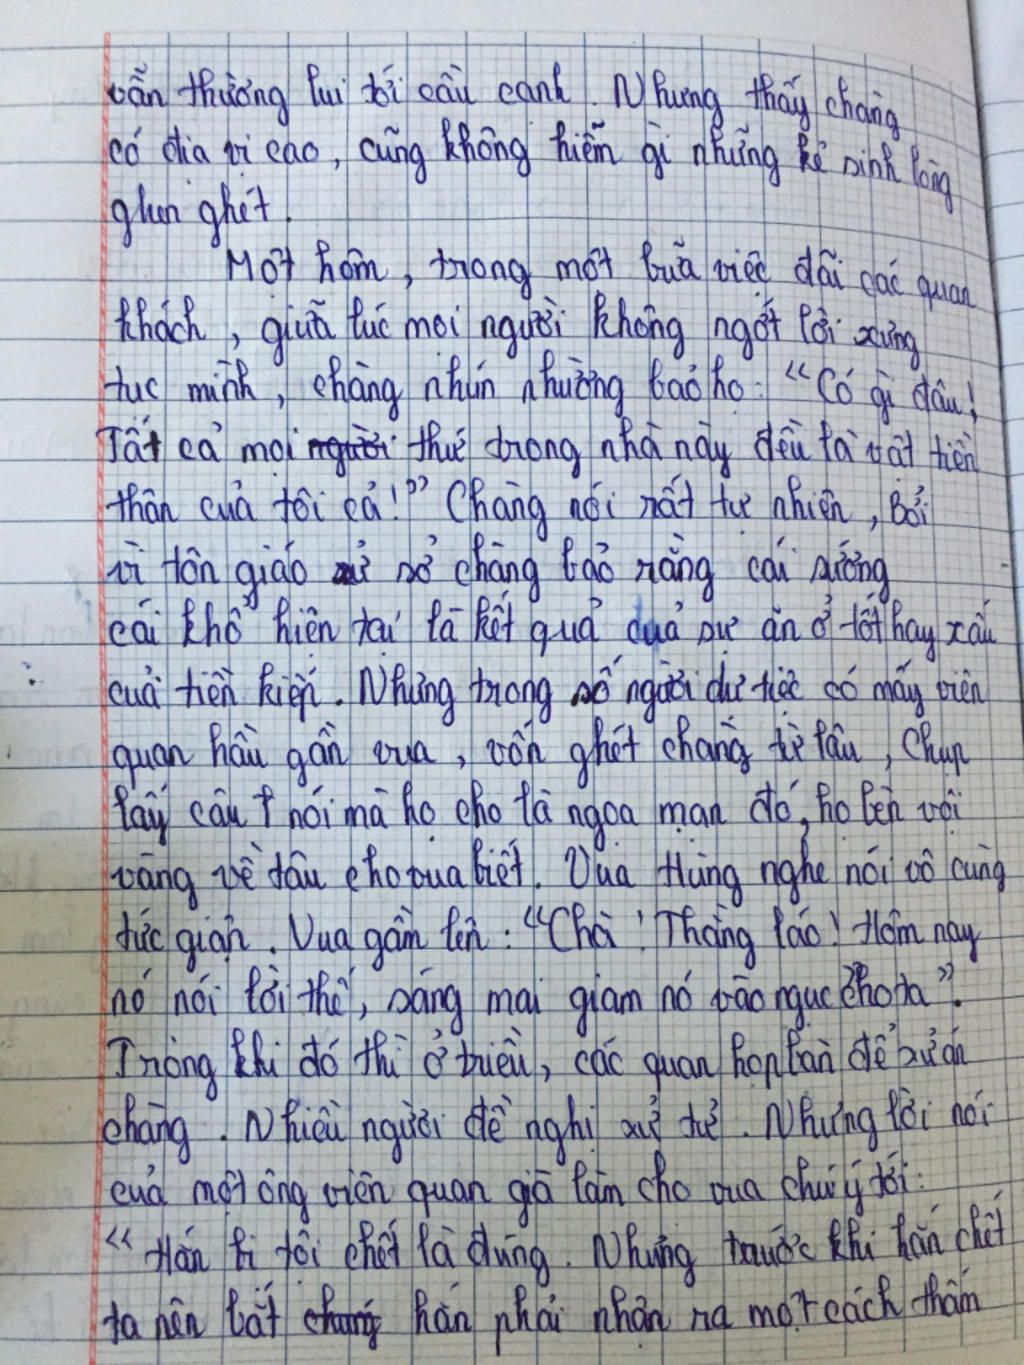 vẫn thường lui tới cầu cạnh. Nhưng thấy chàng
có địa vị cao, cũng không hiếm gì những kẻ sinh lòng
ghen ghét.
Một hôm, trong một bữa tiệc đãi các quan
khách, giữa lúc mọi người không ngớt lời xưng
tục mình, chàng nhún nhường bảo họ: "Có gì đâu!
Tất cả mọi người thứ trong nhà này đều là vật tiền
thân của tôi cả!" Chàng nói rất tự nhiên, Bởi
vì tôn giáo xứ sở chàng bảo rằng cái sướng
cái khổ hiện tại là kết quả của sự ăn ở tốt hay xấu
của tiền kiếp. Nhưng trong số người dự tiệc có mấy viên
quan hầu gần vua, vốn ghét chàng từ lâu, Chụp
lấy câu nói mà họ cho là ngoa mạn đó, họ bèn vội
vàng về tâu cho vua biết. Vua Hùng nghe nói vô cùng
tức giận. Vua gầm lên: "Chà! Thằng láo! Hôm nay
nó nói lời thế, sáng mai giam nó vào ngục cho ta".
Trong khi đó thì ở triều, các quan họp bàn để xử án
chàng. Nhiều người đề nghị xử tử. Nhưng lời nói
của một ông viên quan già làm cho vua chú ý tới:
"Hắn bị tội chết là đúng. Nhưng trước khi hắn chết
ta nên bắt chúng hắn phải nhận ra một cách thấm